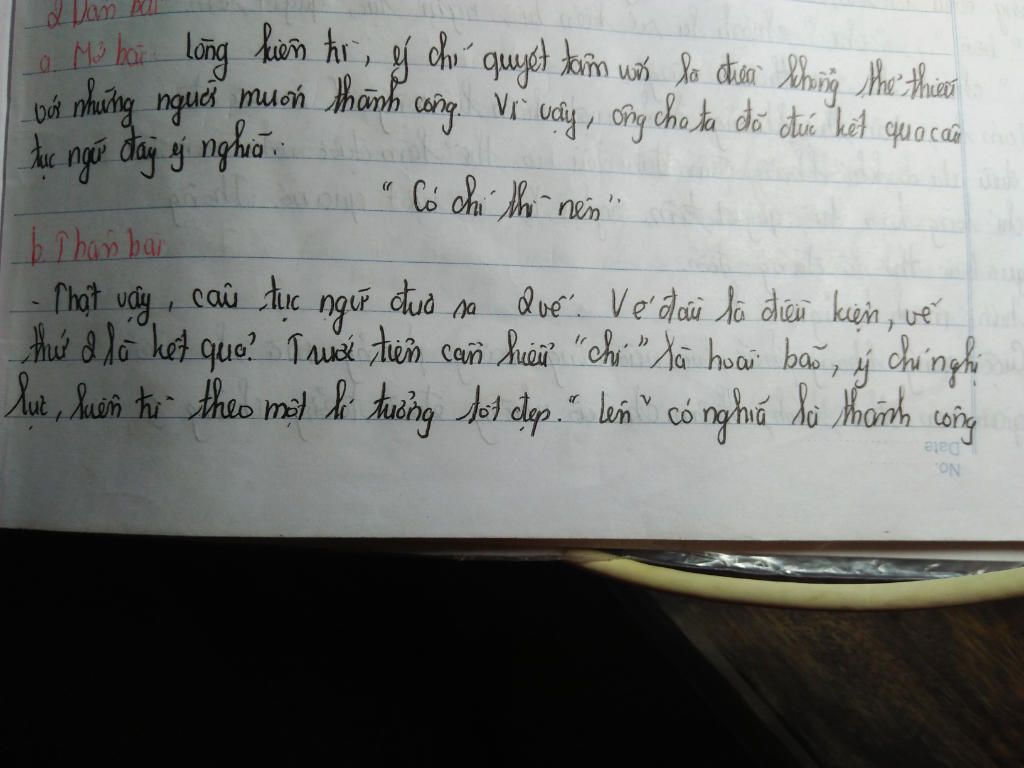 2 Dàn bài
a. Mở bài: lòng kiên trì, ý chí quyết tâm vốn là điều không thể thiếu
với những người muốn thành công. Vì vậy, ông cha ta đã đúc kết qua câu
tục ngữ đầy ý nghĩa:
"Có chí thì nên"
b Thân bài
- Thật vậy, câu tục ngữ đưa ra 2 vế. Vế đầu là điều kiện, vế
thứ 2 là kết quả. Trước tiên cần hiểu "chí" là hoài bão, ý chí nghị
lực, kiên trì theo một lí tưởng tốt đẹp. "lên" có nghĩa là thành công
No.
Date